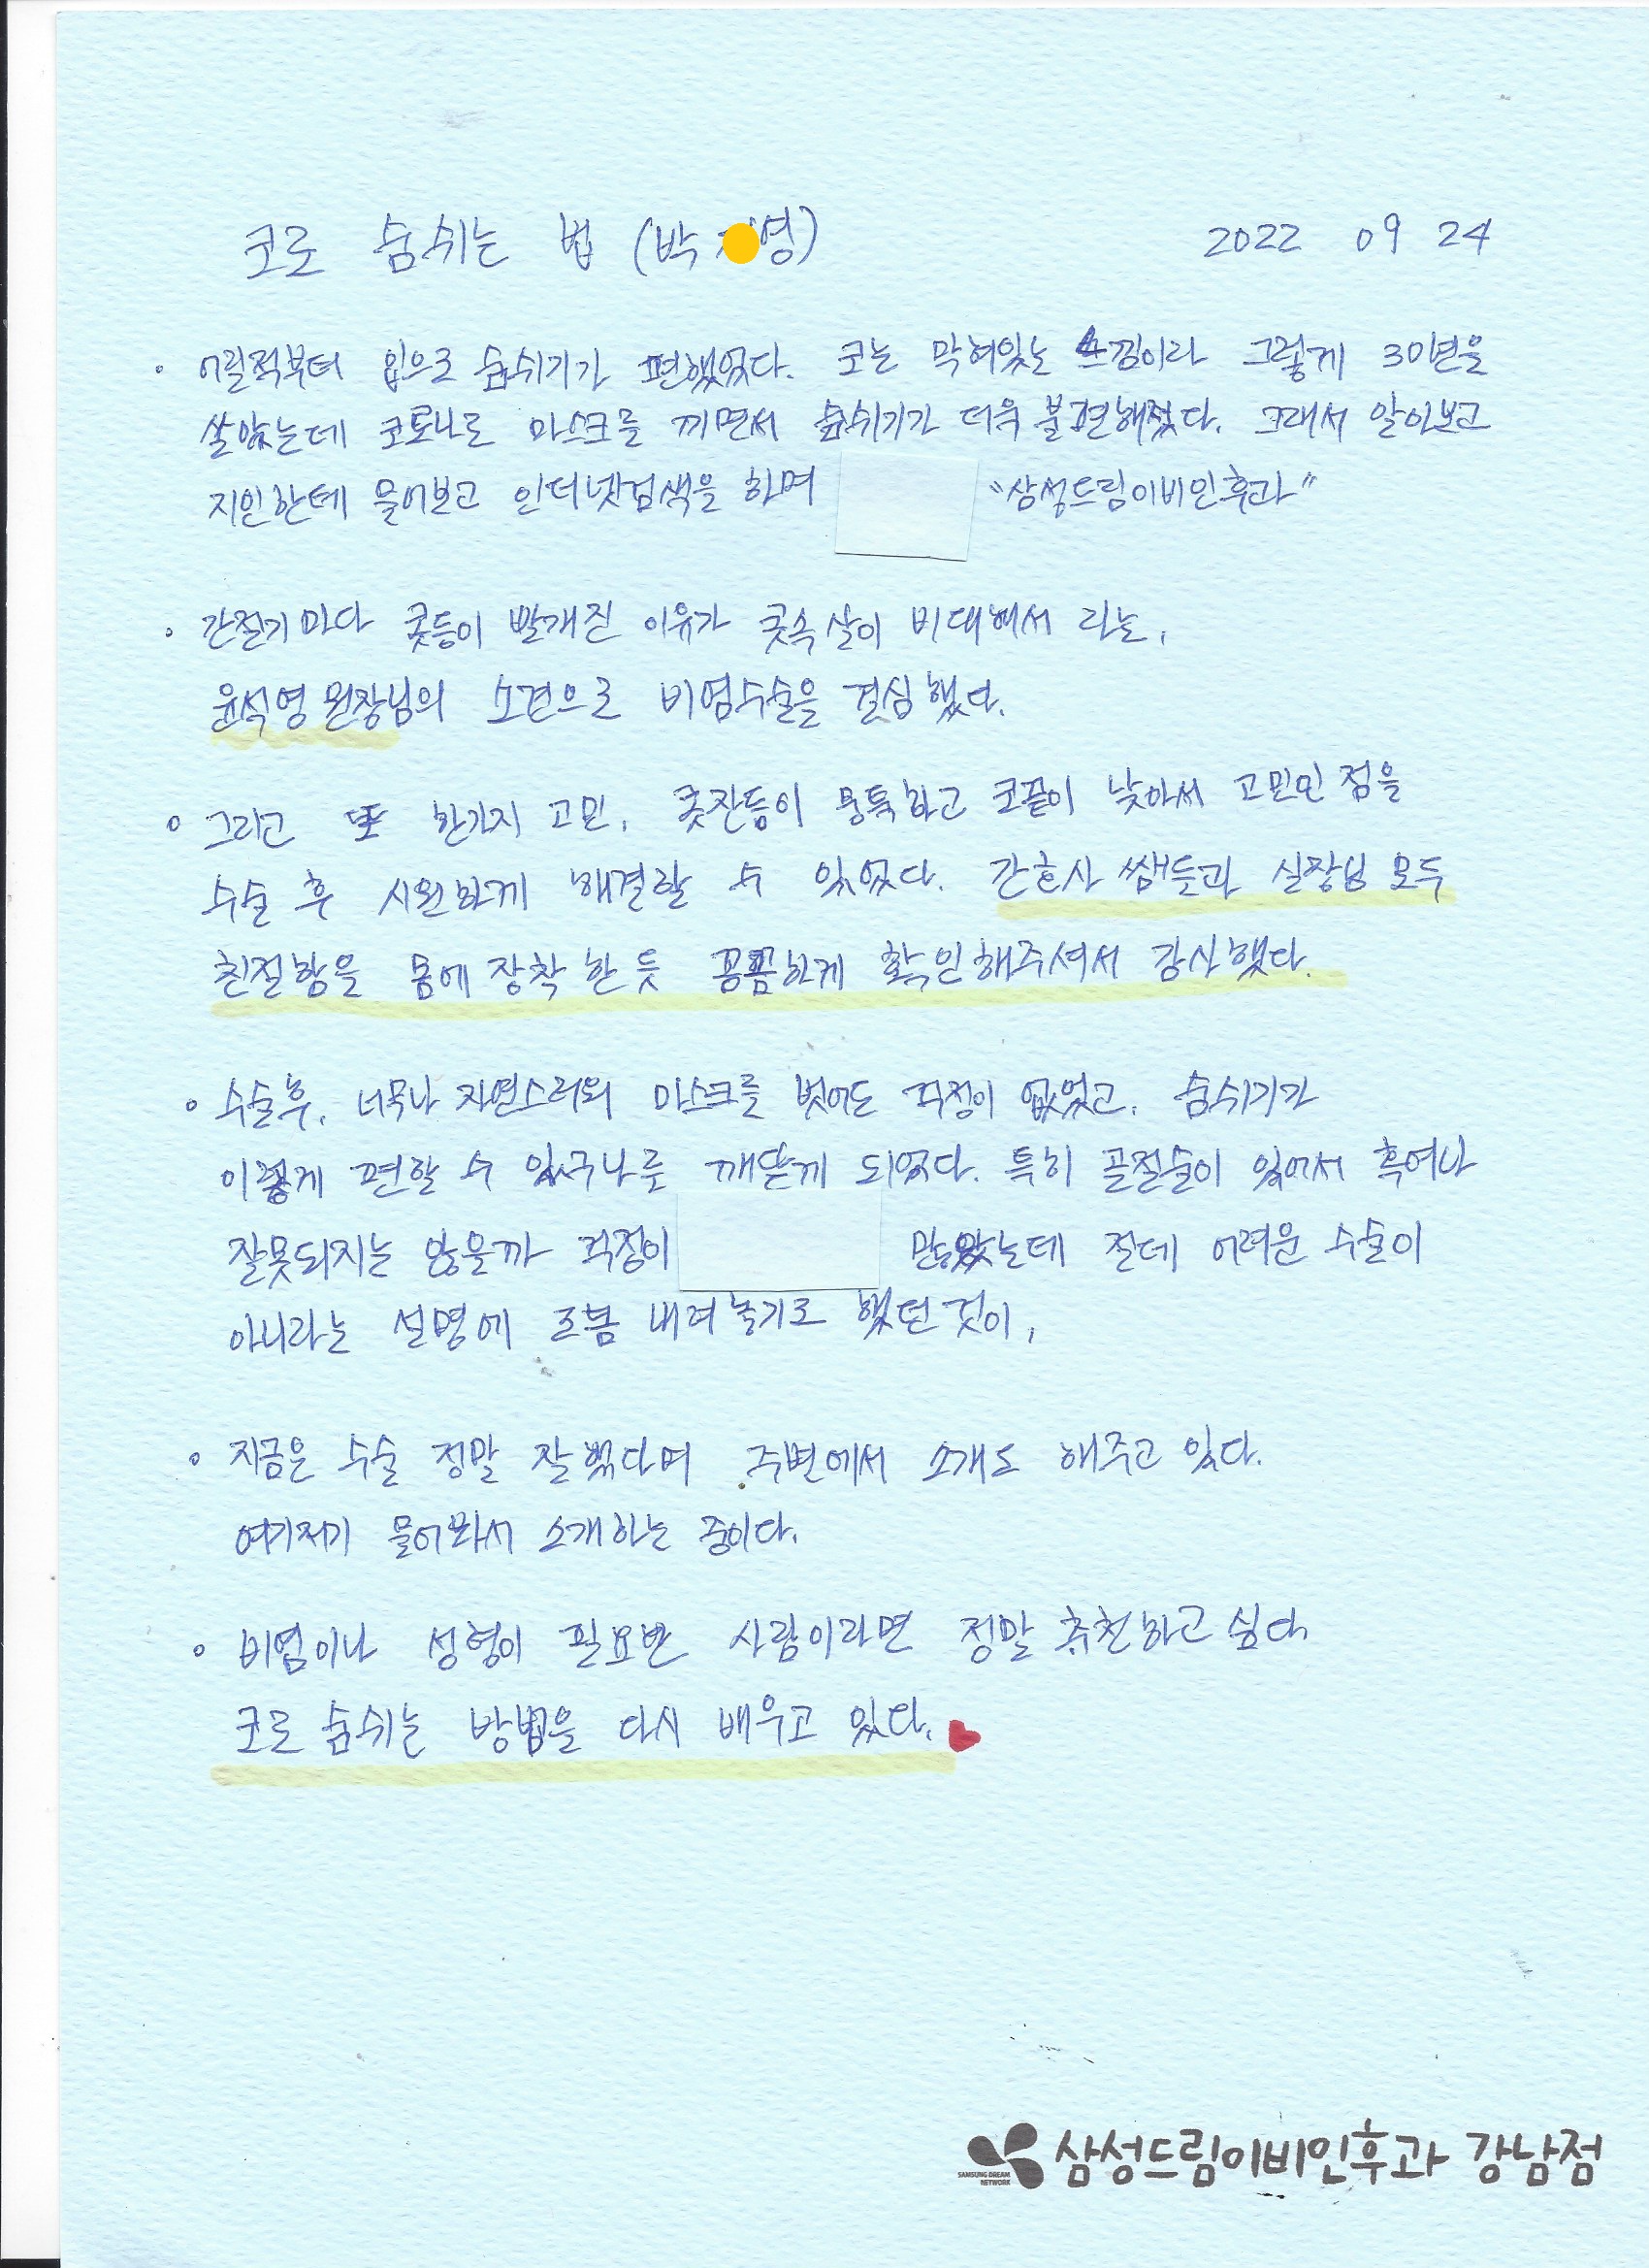 코로 숨쉬는 법 (박 영) 2022 09 24
• 어릴적부터 입으로 숨쉬기가 편했었다. 코는 막혀있는 느낌이라 그렇게 30년을
살았는데 코로나로 마스크를 끼면서 숨쉬기가 더욱 불편해졌다. 그래서 알아보고
지인한테 물어보고 인터넷검색을 하며 "삼성드림이비인후과"
• 간절기마다 콧등이 빨개진 이유가 콧속살이 비대해서 라는,
윤석영 원장님의 소견으로 비염수술을 결심했다.
• 그리고 또 한가지 고민, 콧잔등이 뭉툭하고 코끝이 낮아서 고민인 점을
수술 후 시원하게 해결할 수 있었다. 간호사 쌤들과 실장님 모두
친절함을 몸에 장착한 듯 꼼꼼하게 확인해주셔서 감사했다.
• 수술후, 너무나 자연스러워 마스크를 벗어도 걱정이 없었고, 숨쉬기가
이렇게 편할 수 있구나를 깨닫게 되었다. 특히 골절술이 있어서 혹여나
잘못되지는 않을까 걱정이 많았는데 절데 어려운 수술이
아니라는 설명에 조봄 내려놓기로 했던 것이,
• 지금은 수술 정말 잘했다며 주변에서 소개도 해주고 있다.
여기저기 물어봐서 소개하는 중이다.
• 비염이나 성형이 필요한 사람이라면 정말 추천하고 싶다
코로 숨쉬는 방법을 다시 배우고 있다.
SAMSUNG DREAM NETWORK 삼성드림이비인후과 강남점